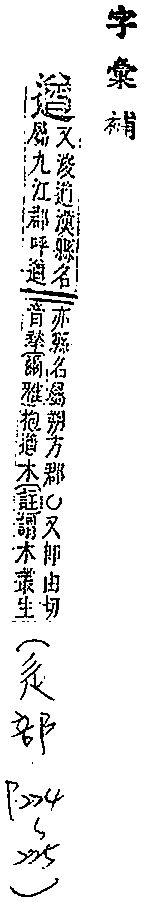 字彙補
遒
又浚遒漢縣名
屬九江郡呼遒
亦縣名屬朔方郡〇又卽由切
音揫爾雅抱遒木註謂木叢生
(辵部 P.224
225)